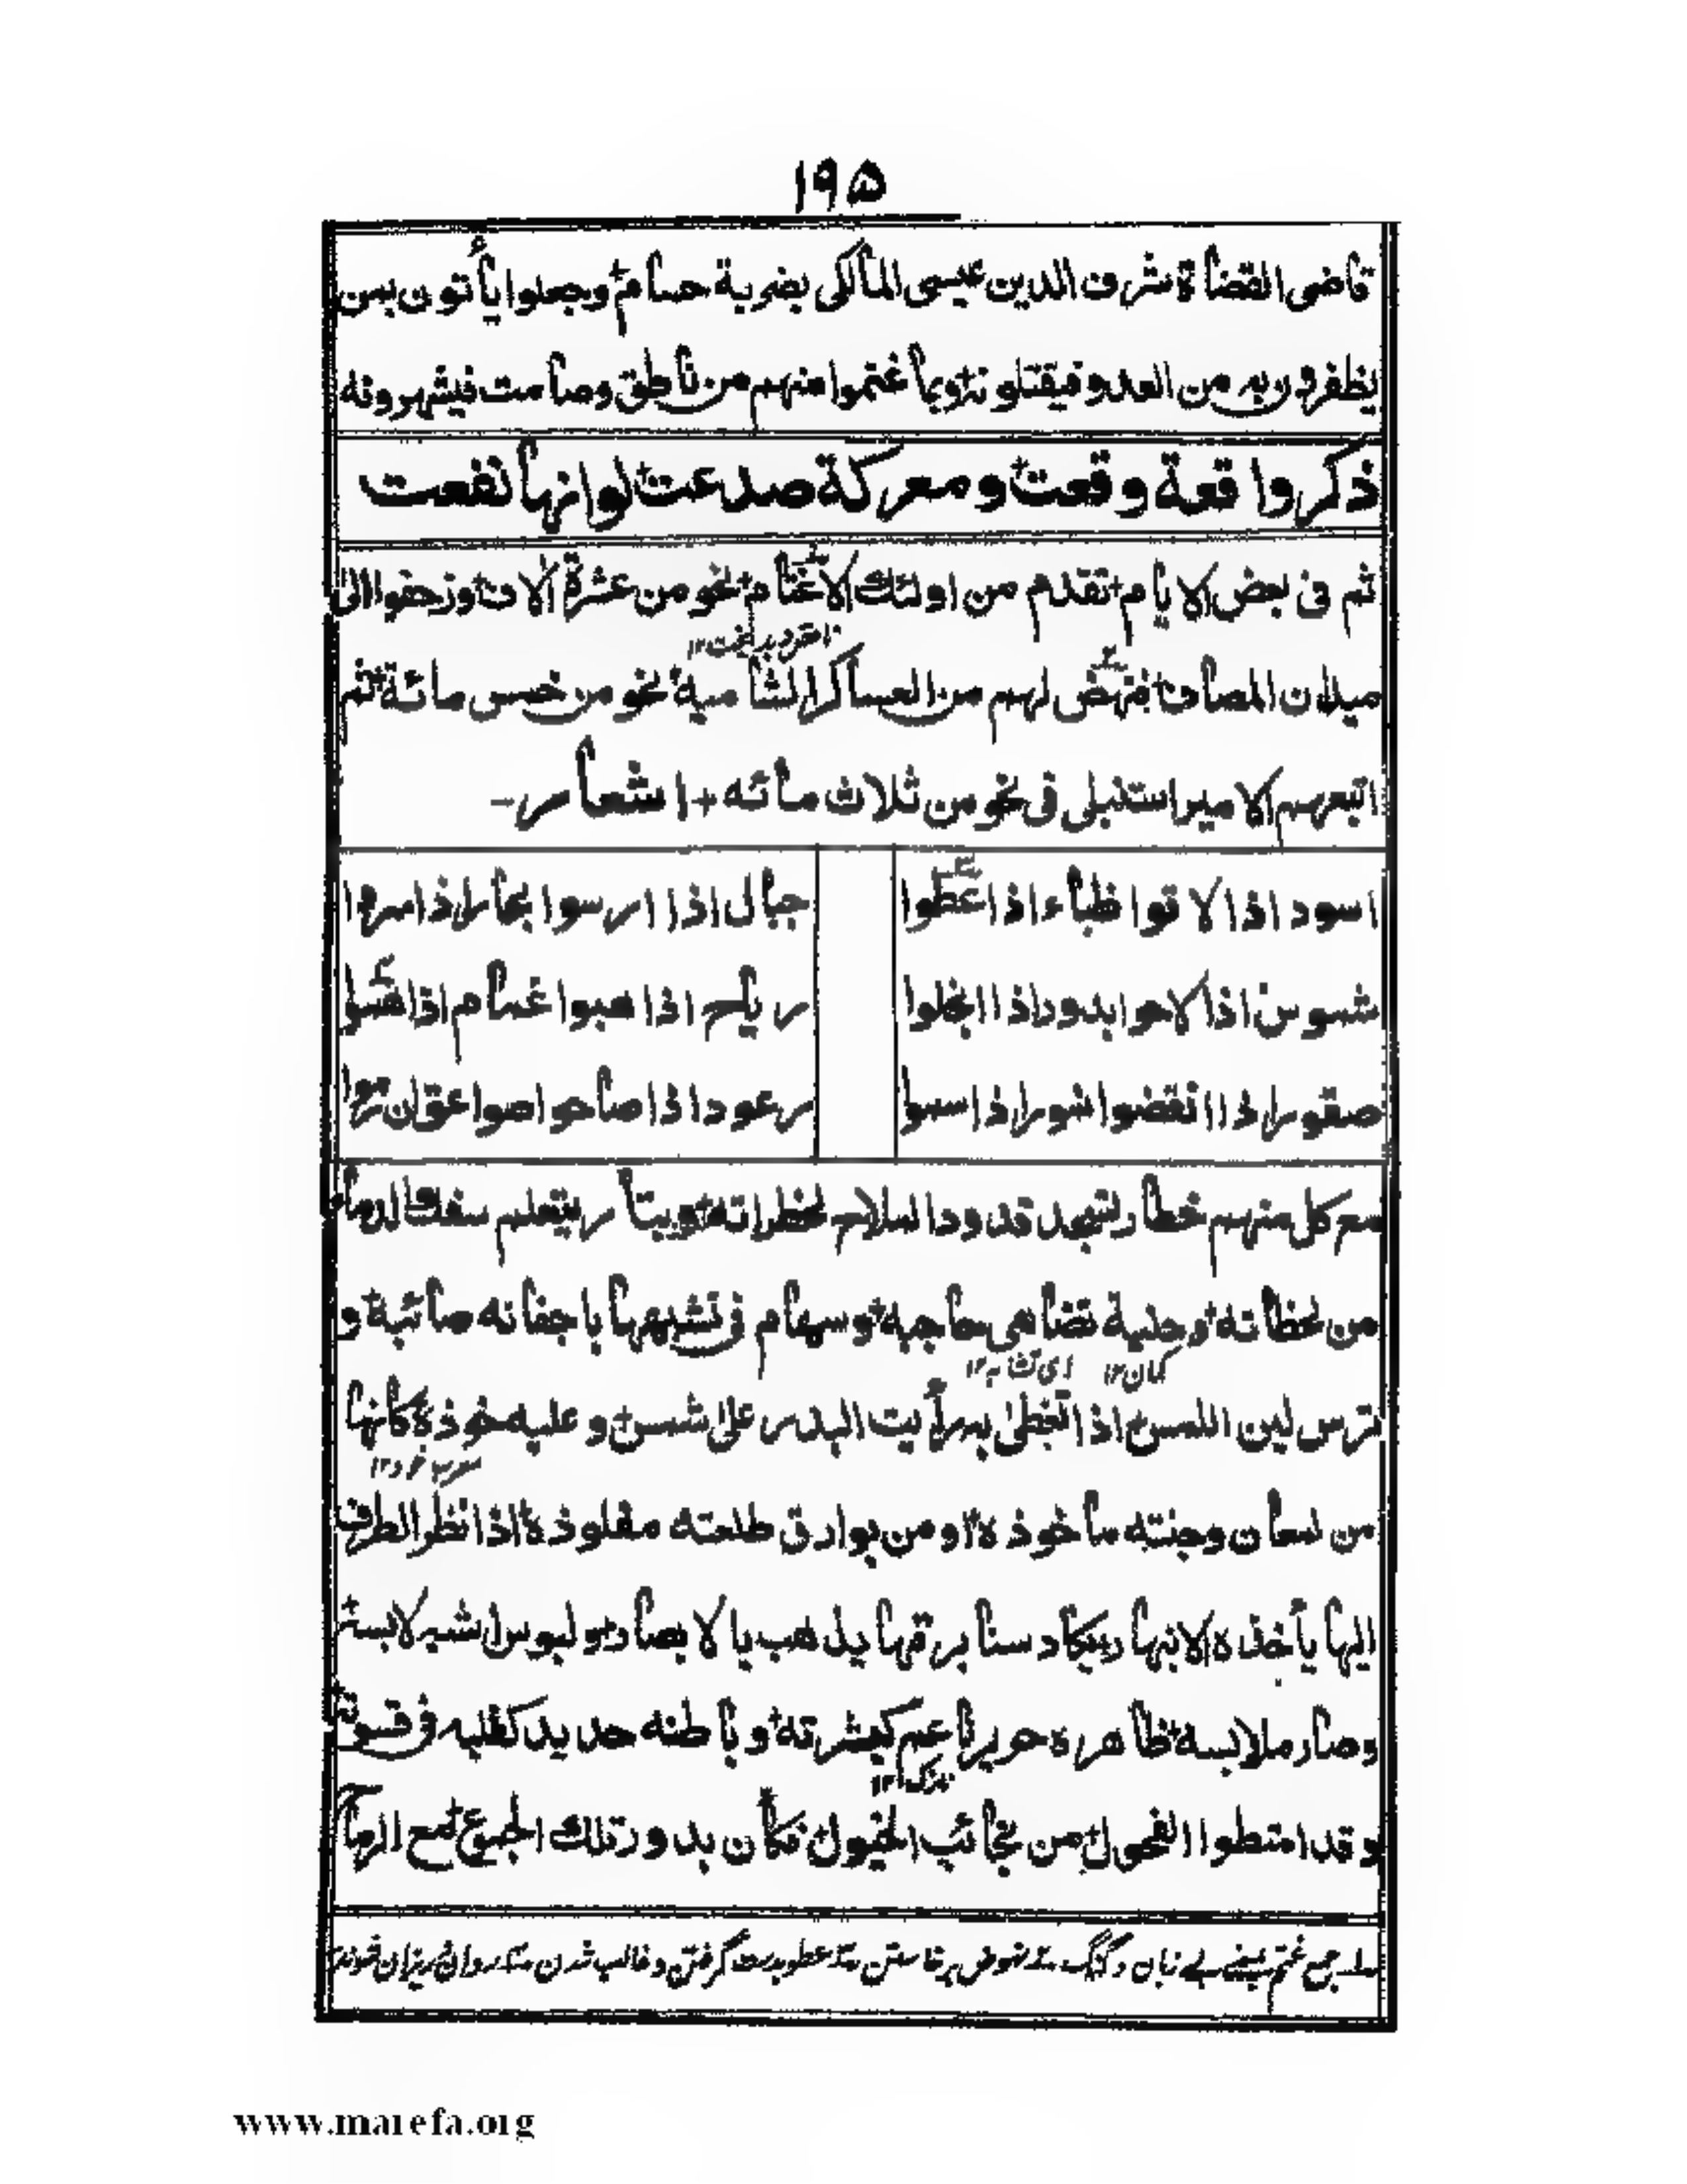 ۱۹۵
قاضی القضاة شرف الدین عیسی المالکی بضربة حسام+ وجعلوا یأتون بمن
یظفرون به من العدو فیقتلونه+ وبما غنموا منهم من ناطق وصامت فیشهرونه
ذکر واقعة وقعت+ ومعرکة صدعت+ لو انها نفعت
ثم فی بعض الایام+ تقدم من اولئك الاغتام+ نحو من عشرة آلاف+ وزحفوا الی
میدان المصاف+ فنهض لهم من العساکر الشامیة+ نحو من خمس مائة+ ثم
اتبعهم الامیر استنبلی فی نحو من ثلاث مائه+ اشعار -
اسود اذا لاقوا ظباء اذا عطوا
جبال اذا ارسوا بحار اذا سروا
شموس اذا لاحوا بدور اذا انجلوا
ریاح اذا هبوا غمام اذا همَوا
صقور اذا انقضوا نمور اذا سموا
رعود اذا صاحوا صواعق ان رموا
مع کل منهم خطار لتهمد قدود الملاح لخطراته+ ویبتار یتعلم سفك الدماء
من لحظاته+ وحلیة تضاهی حاجبه+ وسهام فی تشبهها باجفانه صائبة+ و
کمان۱۲ ای تشابه۱۲
ترس لین اللمس+ اذا تغطی به رأیت البدر علی شمس+ وعلیه خوذة کأنها
من لمعان وجنته مأخوذة+ او من بوارق طلعته مفلوذة+ اذا نظر الطرف
الیها یأخذه الانبهار+ یکاد سنا برقها یذهب بالابصار+ ولبوس اشبه لابسه+
وصار ملابسه+ ظاهره حریر ناعم کبشرته+ وباطنه حدید کقلبه فی قسوته+
نازک۱۲
وقد امتطوا الفحول+ من نجائب الخیول+ فکأن بدور تلك الجموع+ مع الرماح
جمع غتم بمعنے بے زبان و گنگ نهوض برخاستن عطو بدست گرفتن و غالب شدن روان و ریزان شوند
www.marefa.org